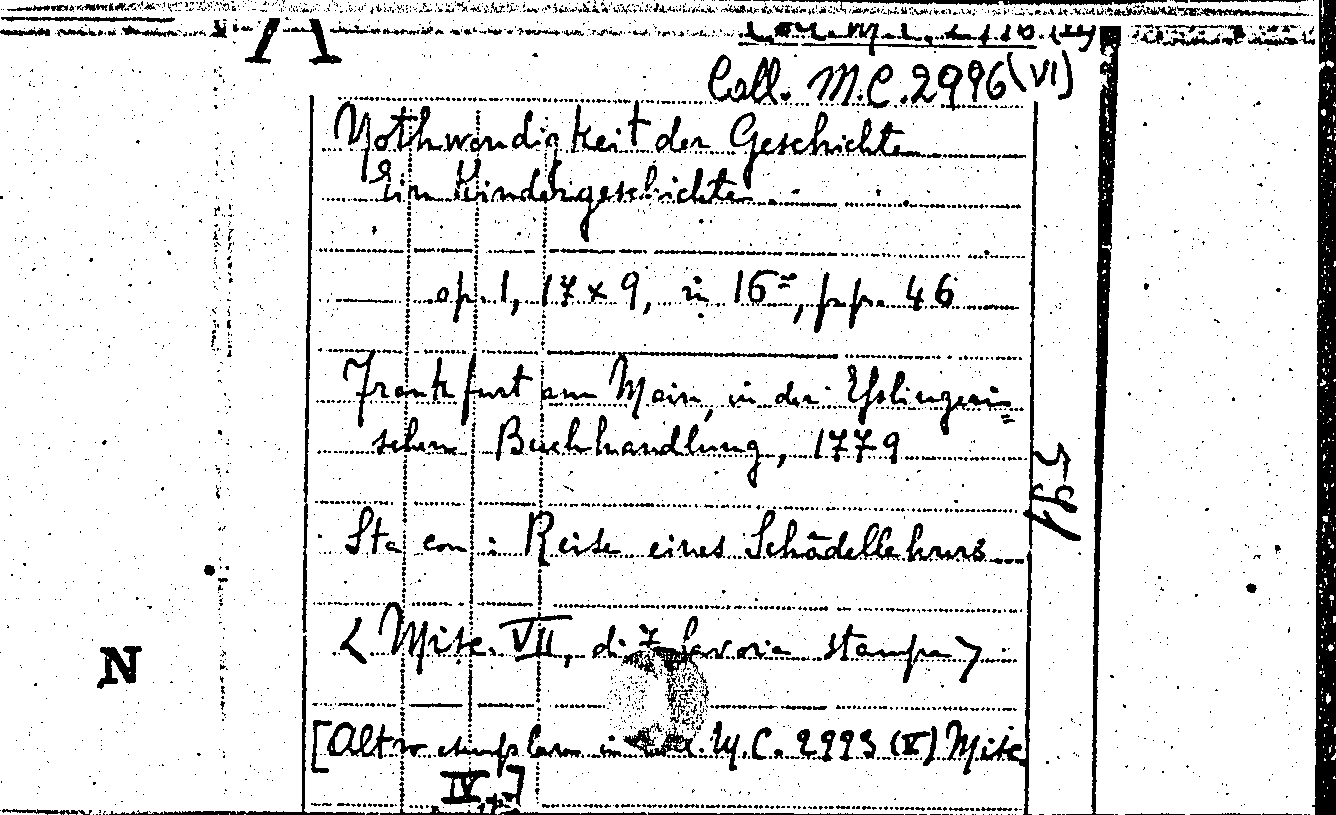 Coll. M.C. 2996 (VI)
Nothwendigkeit der Geschichte
Ein Kindergeschichte
op. 1, 17 x 9, in 16º, pp. 46
Frankfurt am Main, in der Eßlingeri=
schen Buchhandlung, 1779
Sta con: Reise eines Schädellehrers
< Misc. VII, di 7 lavori a stampa >
N
[Altro esemplare in Coll. M.C. 2993 (V) Misc
IV,